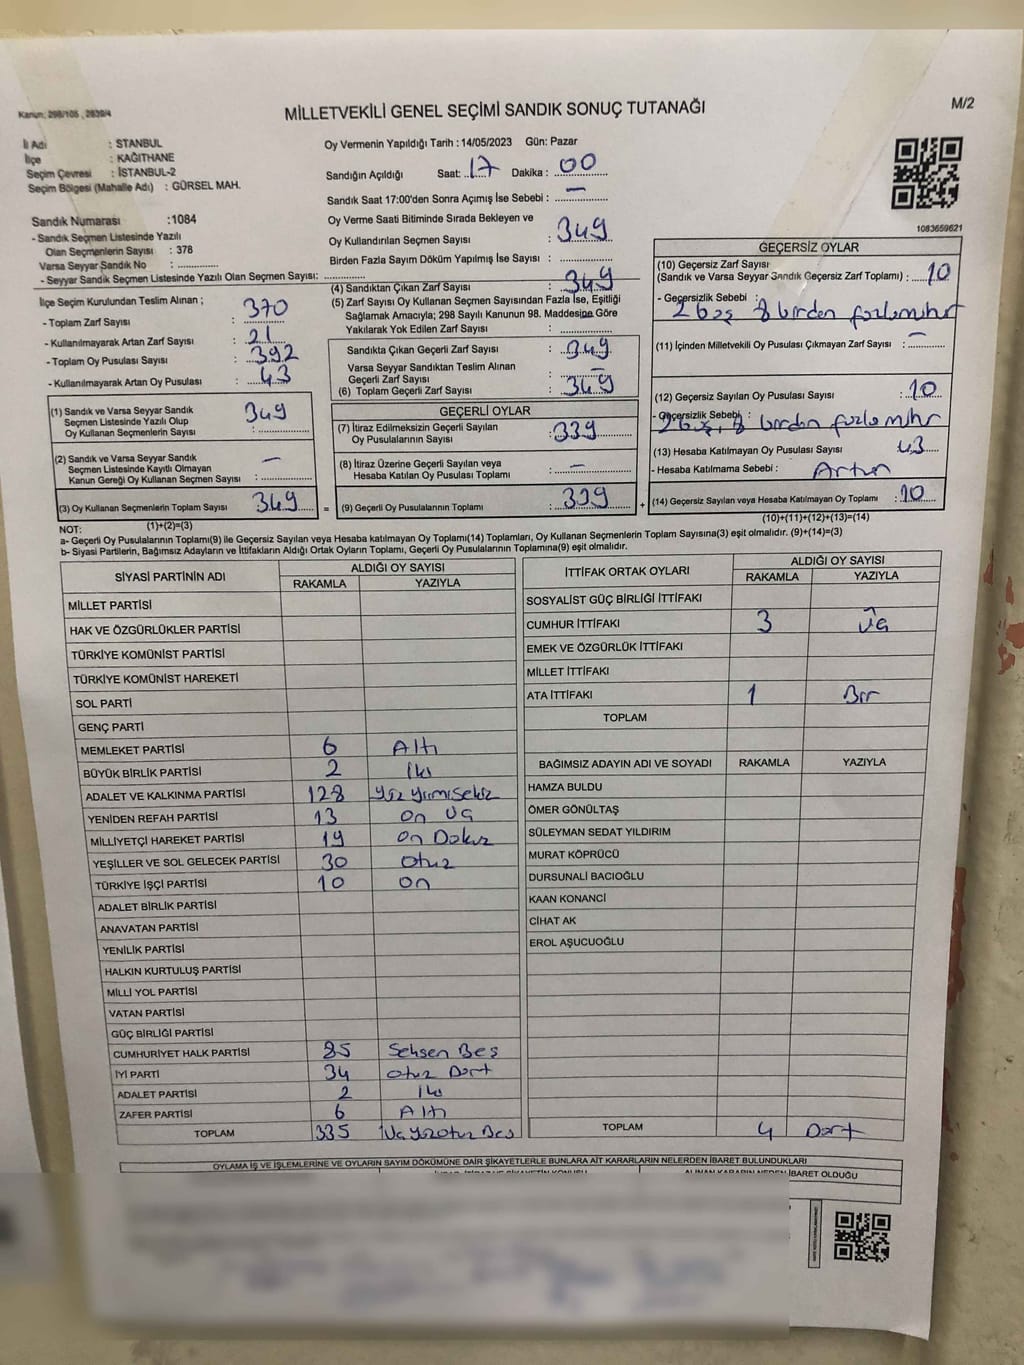 Kanun: 298/105 , 2839/4
MİLLETVEKİLİ GENEL SEÇİMİ SANDIK SONUÇ TUTANAĞI
M/2
İl Adı : STANBUL
İlçe : KAĞITHANE
Seçim Çevresi : İSTANBUL-2
Seçim Bölgesi (Mahalle Adı) : GÜRSEL MAH.
Oy Vermenin Yapıldığı Tarih : 14/05/2023 Gün: Pazar
Sandığın Açıldığı Saat: 17 Dakika : 00
Sandık Saat 17:00'den Sonra Açımış İse Sebebi : —
Sandık Numarası :1084
- Sandık Seçmen Listesinde Yazılı
Olan Seçmenlerin Sayısı : 378
Varsa Seyyar Sandık No : ..............
- Seyyar Sandık Seçmen Listesinde Yazılı Olan Seçmen Sayısı: ..............
Oy Verme Saati Bitiminde Sırada Bekleyen ve
Oy Kullandırılan Seçmen Sayısı : 349
Birden Fazla Sayım Döküm Yapılmış İse Sayısı : ..............
1083659621
İlçe Seçim Kurulundan Teslim Alınan ;
- Toplam Zarf Sayısı : 370
- Kullanılmayarak Artan Zarf Sayısı : 21
- Toplam Oy Pusulası Sayısı : 392
- Kullanılmayarak Artan Oy Pusulası : 43
(1) Sandık ve Varsa Seyyar Sandık
Seçmen Listesinde Yazılı Olup
Oy Kullanan Seçmenlerin Sayısı : 349
(2) Sandık ve Varsa Seyyar Sandık
Seçmen Listesinde Kayıtlı Olmayan
Kanun Gereği Oy Kullanan Seçmen Sayısı : —
(3) Oy Kullanan Seçmenlerin Toplam Sayısı : 349
(1)+(2)=(3)
(4) Sandıktan Çıkan Zarf Sayısı : 349
(5) Zarf Sayısı Oy Kullanan Seçmen Sayısından Fazla İse, Eşitliği
Sağlamak Amacıyla; 298 Sayılı Kanunun 98. Maddesine Göre
Yakılarak Yok Edilen Zarf Sayısı : ..............
Sandıkta Çıkan Geçerli Zarf Sayısı : 349
Varsa Seyyar Sandıktan Teslim Alınan
Geçerli Zarf Sayısı : —
(6) Toplam Geçerli Zarf Sayısı : 349
GEÇERLİ OYLAR
(7) İtiraz Edilmeksizin Geçerli Sayılan
Oy Pusulalarının Sayısı : 339
(8) İtiraz Üzerine Geçerli Sayılan veya
Hesaba Katılan Oy Pusulası Toplamı : —
= (9) Geçerli Oy Pusulalarının Toplamı : 339 +
GEÇERSİZ OYLAR
(10) Geçersiz Zarf Sayısı
(Sandık ve Varsa Seyyar Sandık Geçersiz Zarf Toplamı) : 10
- Geçersizlik Sebebi :
2 boş 8 birden fazla mühr
(11) İçinden Milletvekili Oy Pusulası Çıkmayan Zarf Sayısı : —
(12) Geçersiz Sayılan Oy Pusulası Sayısı : 10
- Geçersizlik Sebebi :
2 boş, 8 birden fazla mühr
(13) Hesaba Katılmayan Oy Pusulası Sayısı : 43
- Hesaba Katılmama Sebebi : Artan
(14) Geçersiz Sayılan veya Hesaba Katılmayan Oy Toplamı : 10
(10)+(11)+(12)+(13)=(14)
NOT:
a- Geçerli Oy Pusulalarının Toplamı(9) ile Geçersiz Sayılan veya Hesaba katılmayan Oy Toplamı(14) Toplamları, Oy Kullanan Seçmenlerin Toplam Sayısına(3) eşit olmalıdır. (9)+(14)=(3)
b- Siyasi Partilerin, Bağımsız Adayların ve İttifakların Aldığı Ortak Oyların Toplamı, Geçerli Oy Pusulalarının Toplamına(9) eşit olmalıdır.
SİYASİ PARTİNİN ADI ALDIĞI OY SAYISI
RAKAMLA YAZIYLA
MİLLET PARTİSİ
HAK VE ÖZGÜRLÜKLER PARTİSİ
TÜRKİYE KOMÜNİST PARTİSİ
TÜRKİYE KOMÜNİST HAREKETİ
SOL PARTİ
GENÇ PARTİ
MEMLEKET PARTİSİ 6 Altı
BÜYÜK BİRLİK PARTİSİ 2 İki
ADALET VE KALKINMA PARTİSİ 128 Yüz yirmi sekiz
YENİDEN REFAH PARTİSİ 13 on üç
MİLLİYETÇİ HAREKET PARTİSİ 19 on Dokuz
YEŞİLLER VE SOL GELECEK PARTİSİ 30 otuz
TÜRKİYE İŞÇİ PARTİSİ 10 on
ADALET BİRLİK PARTİSİ
ANAVATAN PARTİSİ
YENİLİK PARTİSİ
HALKIN KURTULUŞ PARTİSİ
MİLLİ YOL PARTİSİ
VATAN PARTİSİ
GÜÇ BİRLİĞİ PARTİSİ
CUMHURİYET HALK PARTİSİ 85 Seksen Beş
İYİ PARTİ 34 otuz Dört
ADALET PARTİSİ 2 İki
ZAFER PARTİSİ 6 Altı
TOPLAM 335 Üçyüzotuz Beş
İTTİFAK ORTAK OYLARI ALDIĞI OY SAYISI
RAKAMLA YAZIYLA
SOSYALİST GÜÇ BİRLİĞİ İTTİFAKI
CUMHUR İTTİFAKI 3 Üç
EMEK VE ÖZGÜRLÜK İTTİFAKI
MİLLET İTTİFAKI
ATA İTTİFAKI 1 Bir
TOPLAM
BAĞIMSIZ ADAYIN ADI VE SOYADI RAKAMLA YAZIYLA
HAMZA BULDU
ÖMER GÖNÜLTAŞ
SÜLEYMAN SEDAT YILDIRIM
MURAT KÖPRÜCÜ
DURSUNALİ BACIOĞLU
KAAN KONANCİ
CİHAT AK
EROL AŞUCUOĞLU
TOPLAM 4 Dört
OYLAMA İŞ VE İŞLEMLERİNE VE OYLARIN SAYIM DÖKÜMÜNE DAİR ŞİKAYETLERLE BUNLARA AİT KARARLARIN NELERDEN İBARET BULUNDUKLARI
ALINAN KARARIN NEDEN İBARET OLDUĞU